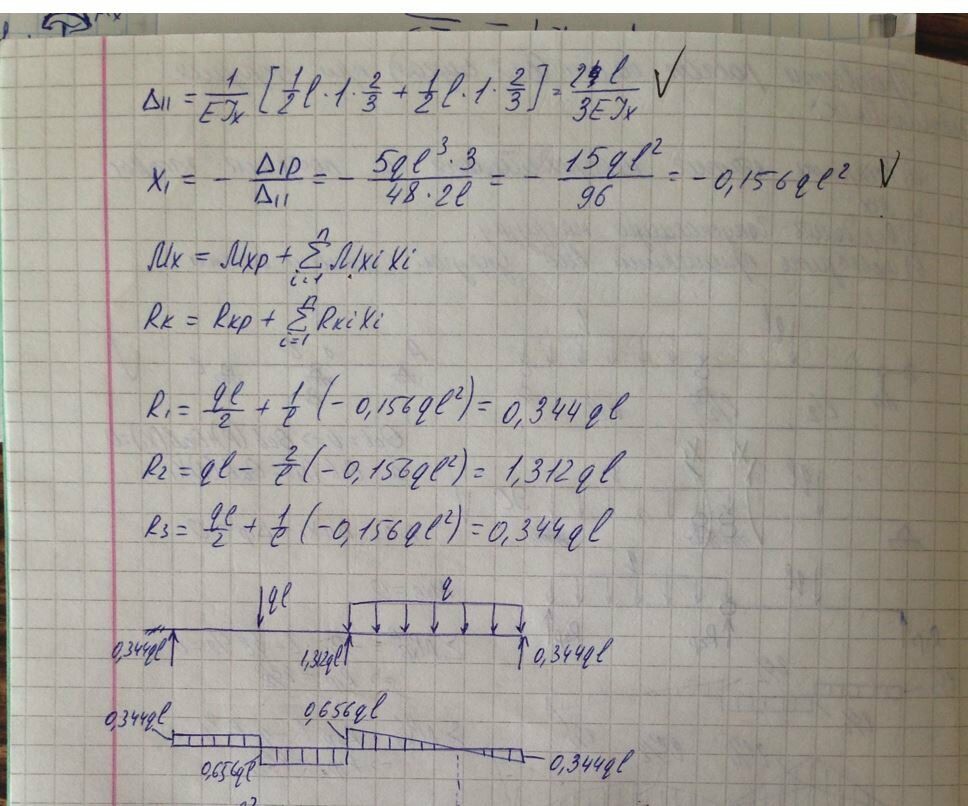 Δ11 = 1/EJx [1/2 l · 1 · 2/3 + 1/2 l · 1 · 2/3] = 2l/3EJx ✓
X1 = - Δ1p/Δ11 = - 5ql³·3/48·2l = - 15ql²/96 = -0,156ql² ✓
Mx = Mxp + Σ(i=1..n) Mxi Xi
Rk = Rkp + Σ(i=1..n) Rki Xi
R1 = ql/2 + 1/l (-0,156ql²) = 0,344ql
R2 = ql - 2/l (-0,156ql²) = 1,312ql
R3 = ql/2 + 1/l (-0,156ql²) = 0,344ql
ql q
0,344ql 1,312ql 0,344ql
0,344ql 0,656ql
0,656ql 0,344ql